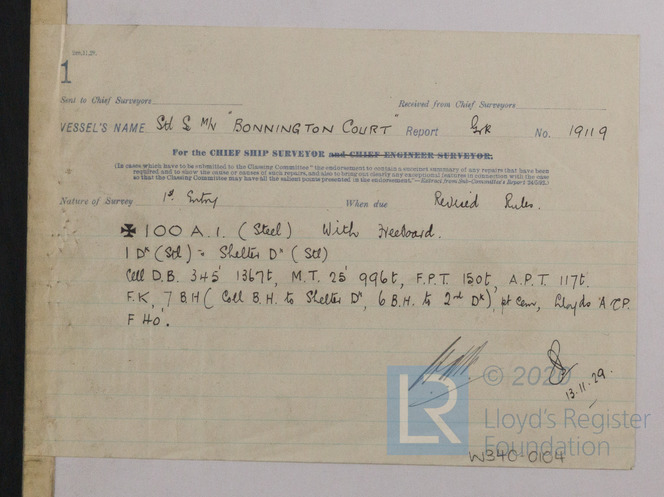 1
Sent to Chief Surveyors
Received from Chief Surveyors
VESSEL'S NAME Stl S M/V "BONNINGTON COURT" Report Grk No. 19119
For the CHIEF SHIP SURVEYOR and CHIEF ENGINEER SURVEYOR.
(In cases which have to be submitted to the Classing Committee "the endorsement to contain a concise summary of any repairs that have been
required and to show the cause or causes of such repairs, and also to bring out clearly any exceptional features in connection with the case
so that the Classing Committee may have all the salient points presented in the endorsement."—Extract from Sub-Committee's Report 24/5/93.)
Nature of Survey 1st Entry When due Revised Rules.
✠ 100 A.1. (Steel) With Freeboard.
1 Dk (Stl) = Shelter Dk (Stl)
Cell D.B. 345' 1367t, M.T. 25' 996t, F.P.T. 150t, A.P.T. 117t.
F.K, 7 B.H ( Coll B.H. to Shelter Dk, 6 B.H. to 2nd Dk), pt Cem, Lloyds A.&C.P.
F 40.
13.11.29.
LR © 2020
Lloyd's Register
Foundation
W340-0104